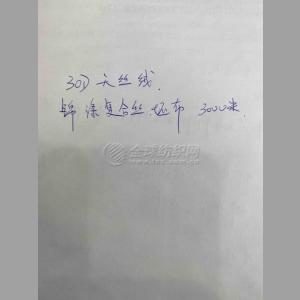 30D 天丝线.
锦涤复合丝.坯布 3000米.
全球纺织网